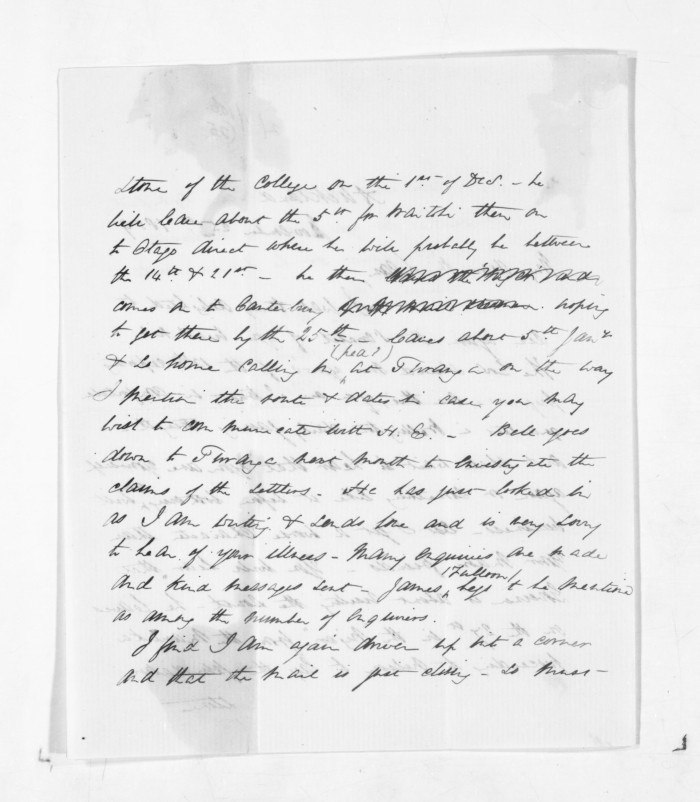 Stone of the College on the 1st of Dec. - he
will leave about the 5th for Waitohi then on
to Otago direct where he will probably be between
the 14th & 21st - he then
comes on to Canterbury hoping
to get there by the 25th - leaves about 5th Jany
& so home calling in (hea?) at Twranga on the way
I mention the route & dates in case you may
wish to communicate with H. E. - Bell goes
down to Twranga next month to investigate the
claims of the settlers. He has just looked in
as I am writing & sends love and is very sorry
to hear of your illness - Many enquiries are made
and kind messages sent - James (Fulloon) begs to be mentioned
as among the number of enquirers.
I find I am again driven up into a corner
and that the mail is just closing - so must -